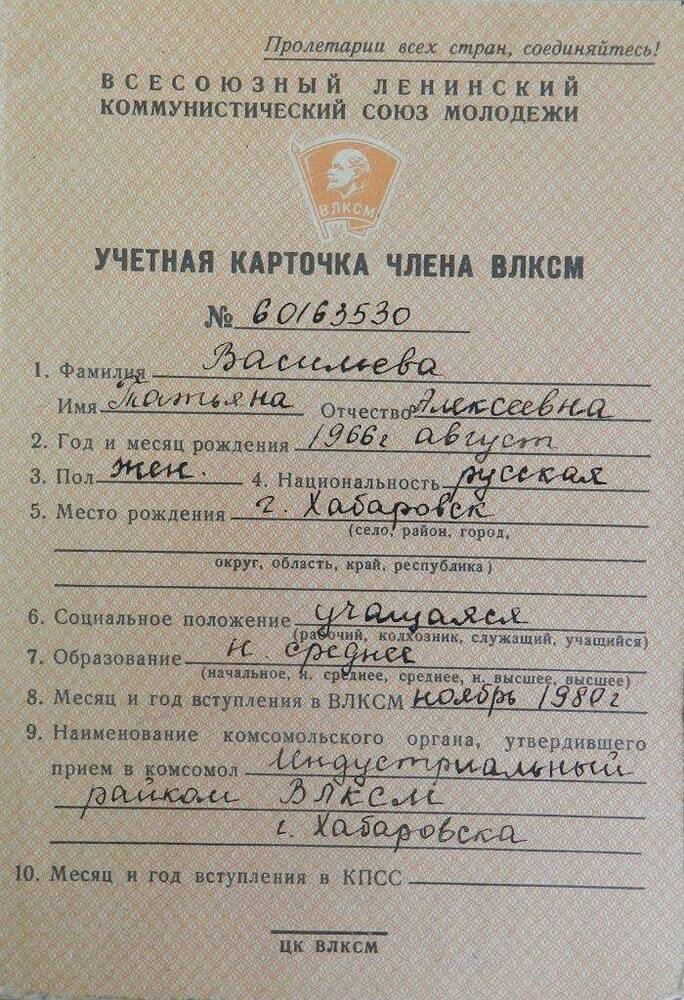 Пролетарии всех стран, соединяйтесь!
ВСЕСОЮЗНЫЙ ЛЕНИНСКИЙ
КОММУНИСТИЧЕСКИЙ СОЮЗ МОЛОДЕЖИ
ВЛКСМ
УЧЕТНАЯ КАРТОЧКА ЧЛЕНА ВЛКСМ
№ 60163530
1. Фамилия Васильева
Имя Татьяна Отчество Алексеевна
2. Год и месяц рождения 1966г август
3. Пол жен. 4. Национальность русская
5. Место рождения г. Хабаровск
(село, район, город,
округ, область, край, республика)
6. Социальное положение учащаяся
(рабочий, колхозник, служащий, учащийся)
7. Образование н. среднее
(начальное, н. среднее, среднее, н. высшее, высшее)
8. Месяц и год вступления в ВЛКСМ ноябрь 1980г
9. Наименование комсомольского органа, утвердившего
прием в комсомол Индустриальный
райком ВЛКСМ
г. Хабаровска
10. Месяц и год вступления в КПСС
ЦК ВЛКСМ